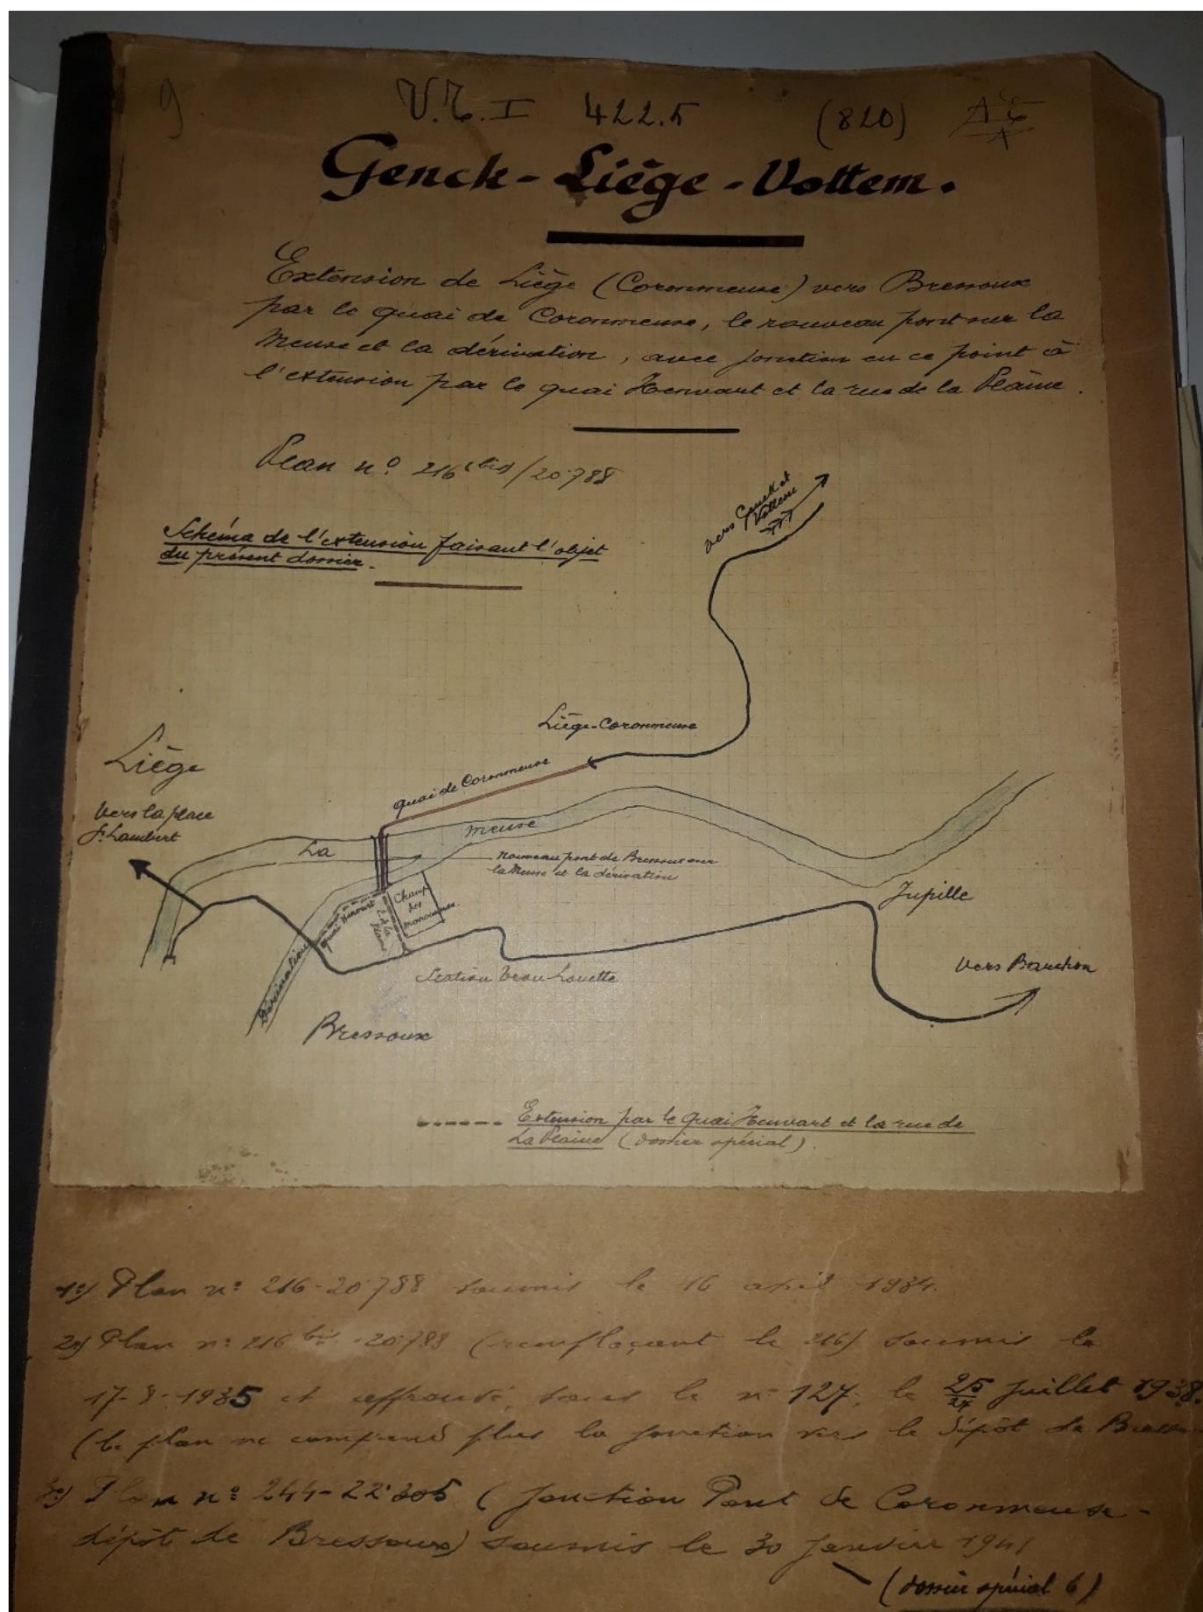 9
V.T.I 422.5 (820)
Genck-Liège-Vottem.
Extension de Liège (Coronmeuse) vers Bressoux
par le quai de Coronmeuse, le nouveau pont sur la
Meuse et la dérivation, avec jonction en ce point à
l'extension par le quai Henvart et la rue de la Plaine.
Plan n° 216 bis/20.788
Schéma de l'extension faisant l'objet
du présent dossier.
vers Genck et
Vottem
Liège-Coronmeuse
Liège
Quai de Coronmeuse
Vers la place
St Lambert
La
Meuse
nouveau pont de Bressoux sur
la Meuse et la dérivation
Champ
des
Manoeuvres
Quai Henvart
R. de la
Plaine
Jupille
Dérivation
Station Trou Louette
Vers Barchon
Bressoux
Extension par le Quai Henvart et la rue de
La Plaine (dossier spécial).
1°) Plan n° 216-20.788 soumis le 16 avril 1934.
2°) Plan n° 216 bis -20.788 (remplaçant le 216) soumis le
17-8-1935 et approuvé, sous le n° 127, le 25/27 juillet 1938.
(le plan ne comprend plus la jonction vers le dépôt de
3°) Plan n° 244-22.305 (jonction Pont de Coronmeuse-
dépôt de Bressoux) soumis le 30 janvier 1941
(dossier spécial 6)